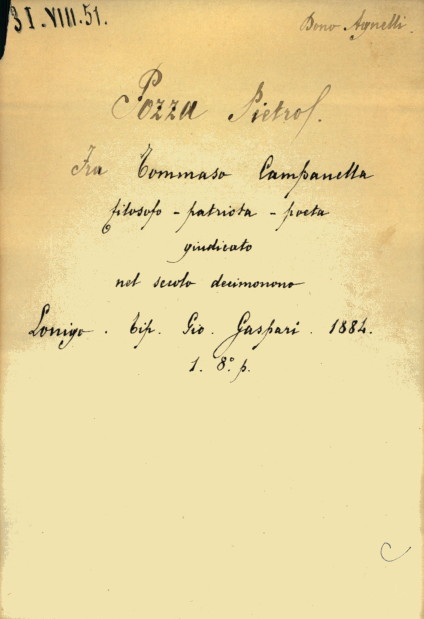 31.VIII.51.
Dono Agnelli.
Pozza Pietro f.
Fra Tommaso Campanella
filosofo - patriota - poeta
giudicato
nel secolo decimonono
Lonigo. tip. Gio. Gaspari. 1884.
1. 8.° p.
C